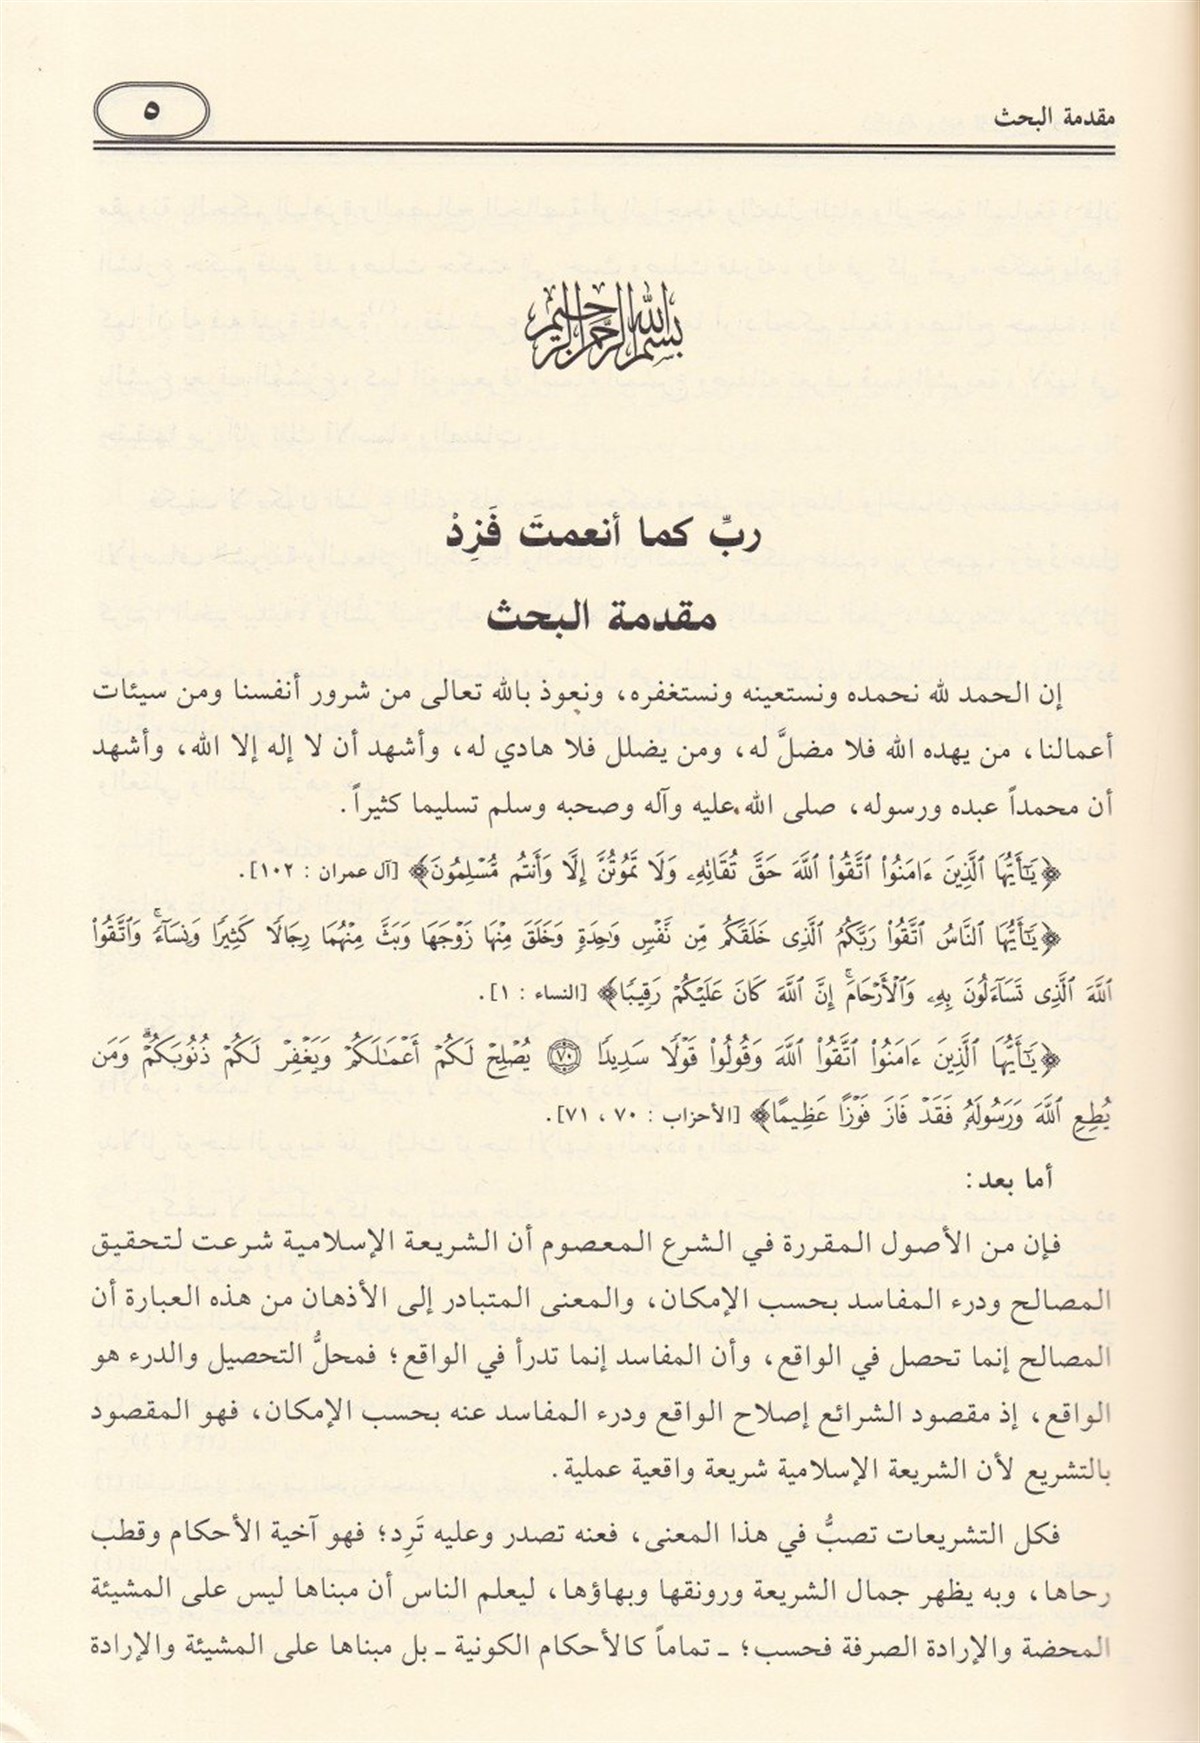 مقدمة البحث
٥
بسم الله الرحمن الرحيم
ربِّ كما أنعمتَ فَزِدْ
مقدمة البحث
إن الحمد لله نحمده ونستعينه ونستغفره، ونعوذ بالله تعالى من شرور أنفسنا ومن سيئات
أعمالنا، من يهده الله فلا مضلَّ له، ومن يضلل فلا هادي له، وأشهد أن لا إله إلا الله، وأشهد
أن محمداً عبده ورسوله، صلى الله عليه وآله وصحبه وسلم تسليما كثيراً.
﴿يَٰٓأَيُّهَا ٱلَّذِينَ ءَامَنُوا۟ ٱتَّقُوا۟ ٱللَّهَ حَقَّ تُقَاتِهِۦ وَلَا تَمُوتُنَّ إِلَّا وَأَنتُم مُّسْلِمُونَ﴾ [آل عمران : ١٠٢].
﴿يَٰٓأَيُّهَا ٱلنَّاسُ ٱتَّقُوا۟ رَبَّكُمُ ٱلَّذِى خَلَقَكُم مِّن نَّفْسٍ وَٰحِدَةٍ وَخَلَقَ مِنْهَا زَوْجَهَا وَبَثَّ مِنْهُمَا رِجَالًا كَثِيرًا وَنِسَآءً ۚ وَٱتَّقُوا۟
ٱللَّهَ ٱلَّذِى تَسَآءَلُونَ بِهِۦ وَٱلْأَرْحَامَ ۚ إِنَّ ٱللَّهَ كَانَ عَلَيْكُمْ رَقِيبًا﴾ [النساء : ١].
﴿يَٰٓأَيُّهَا ٱلَّذِينَ ءَامَنُوا۟ ٱتَّقُوا۟ ٱللَّهَ وَقُولُوا۟ قَوْلًا سَدِيدًا ٧٠ يُصْلِحْ لَكُمْ أَعْمَٰلَكُمْ وَيَغْفِرْ لَكُمْ ذُنُوبَكُمْ ۗ وَمَن
يُطِعِ ٱللَّهَ وَرَسُولَهُۥ فَقَدْ فَازَ فَوْزًا عَظِيمًا﴾ [الأحزاب : ٧٠ ، ٧١].
أما بعد:
فإن من الأصول المقررة في الشرع المعصوم أن الشريعة الإسلامية شرعت لتحقيق
المصالح ودرء المفاسد بحسب الإمكان، والمعنى المتبادر إلى الأذهان من هذه العبارة أن
المصالح إنما تحصل في الواقع، وأن المفاسد إنما تدرأ في الواقع؛ فمحلُّ التحصيل والدرء هو
الواقع، إذ مقصود الشرائع إصلاح الواقع ودرء المفاسد عنه بحسب الإمكان، فهو المقصود
بالتشريع لأن الشريعة الإسلامية شريعة واقعية عملية.
فكل التشريعات تصبُّ في هذا المعنى، فعنه تصدر وعليه تَرِد؛ فهو آخية الأحكام وقطب
رحاها، وبه يظهر جمال الشريعة ورونقها وبهاؤها، ليعلم الناس أن مبناها ليس على المشيئة
المحضة والإرادة الصرفة فحسب؛ ـ تماماً كالأحكام الكونية ـ بل مبناها على المشيئة والإرادة